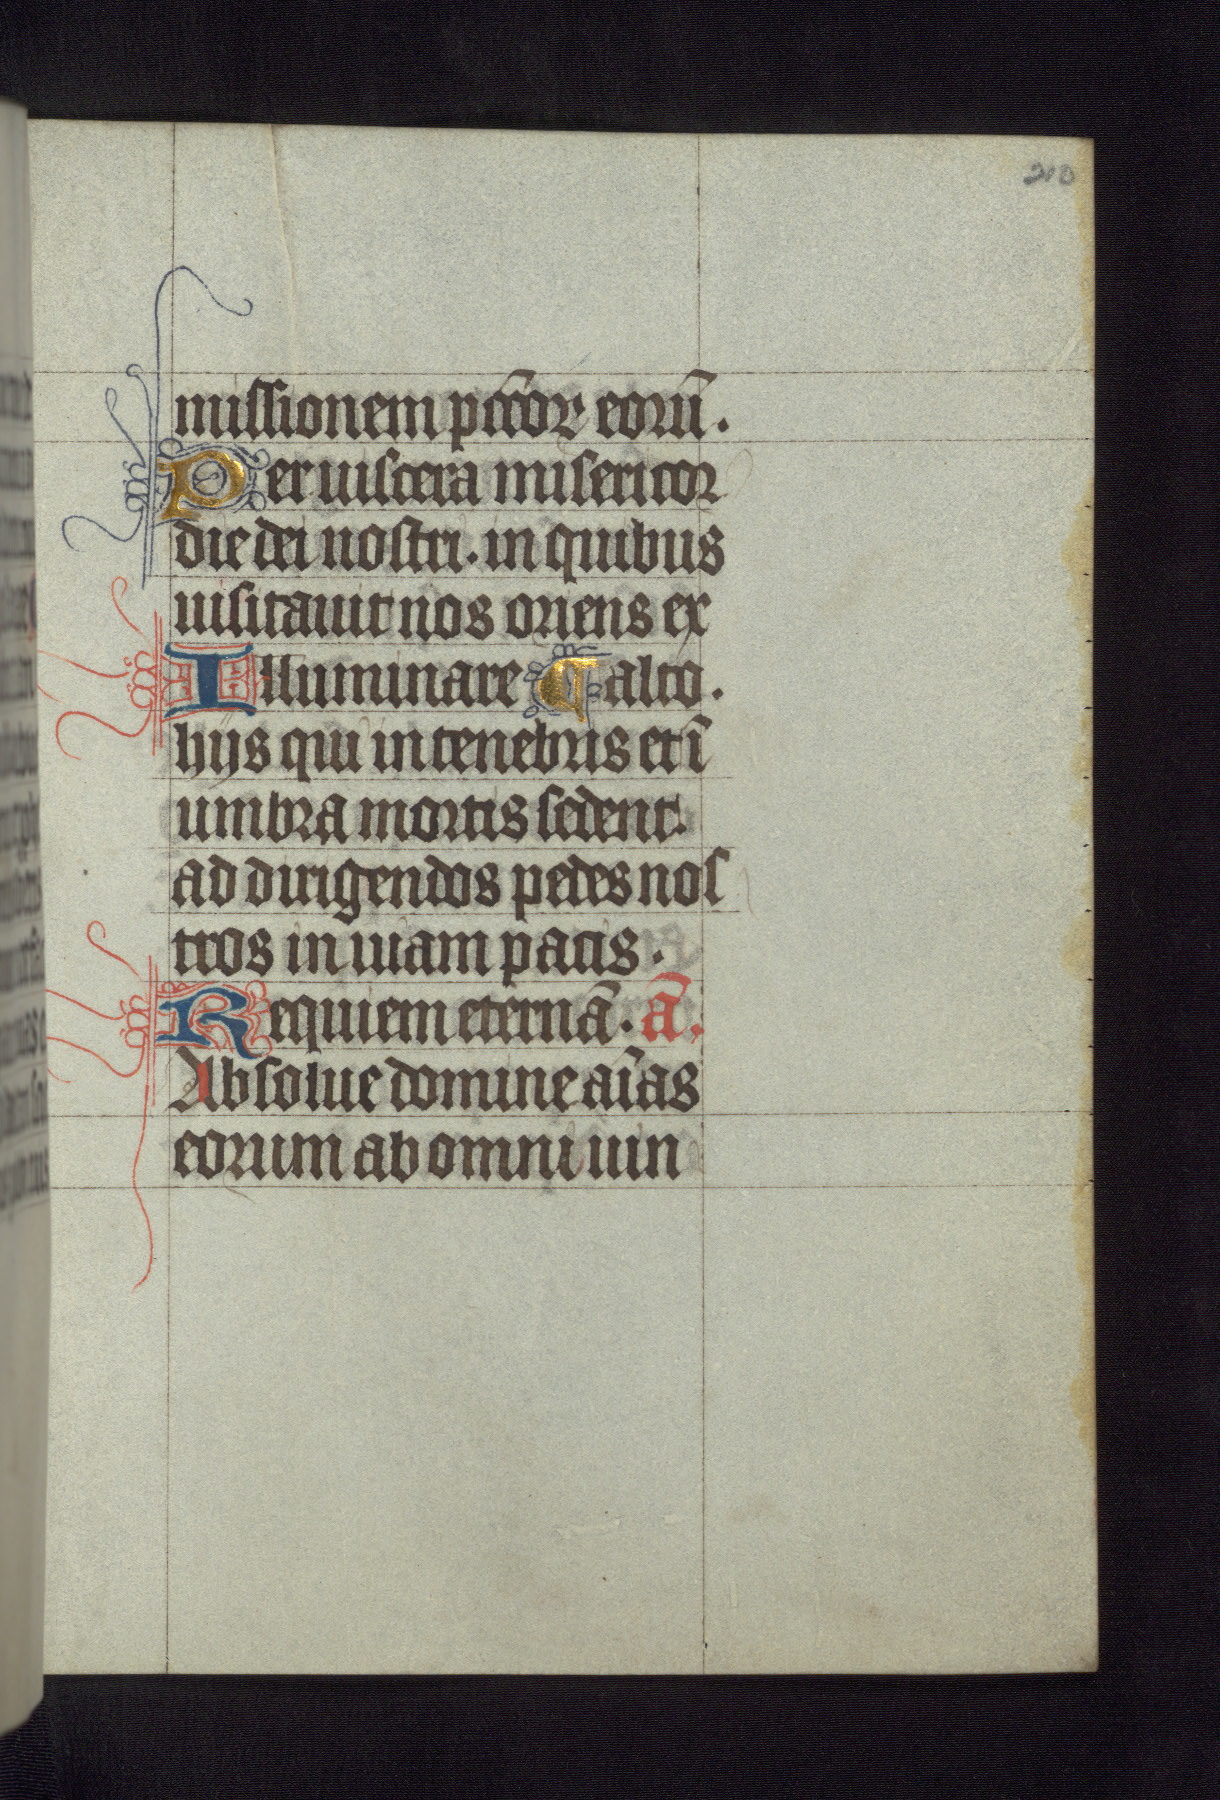 210
missionem pc̄cor eorū.
Per uiscera misericor
die dei nostri. in quibus
uisitauit nos oriens ex
Illuminare ¶ alto.
hijs qui in tenebris et ī
umbra mortis sedent.
ad dirigendos pedes nos
tros in uiam pacis.
Requiem eternā. ā.
Absolue domine aīas
eorum ab omni uin